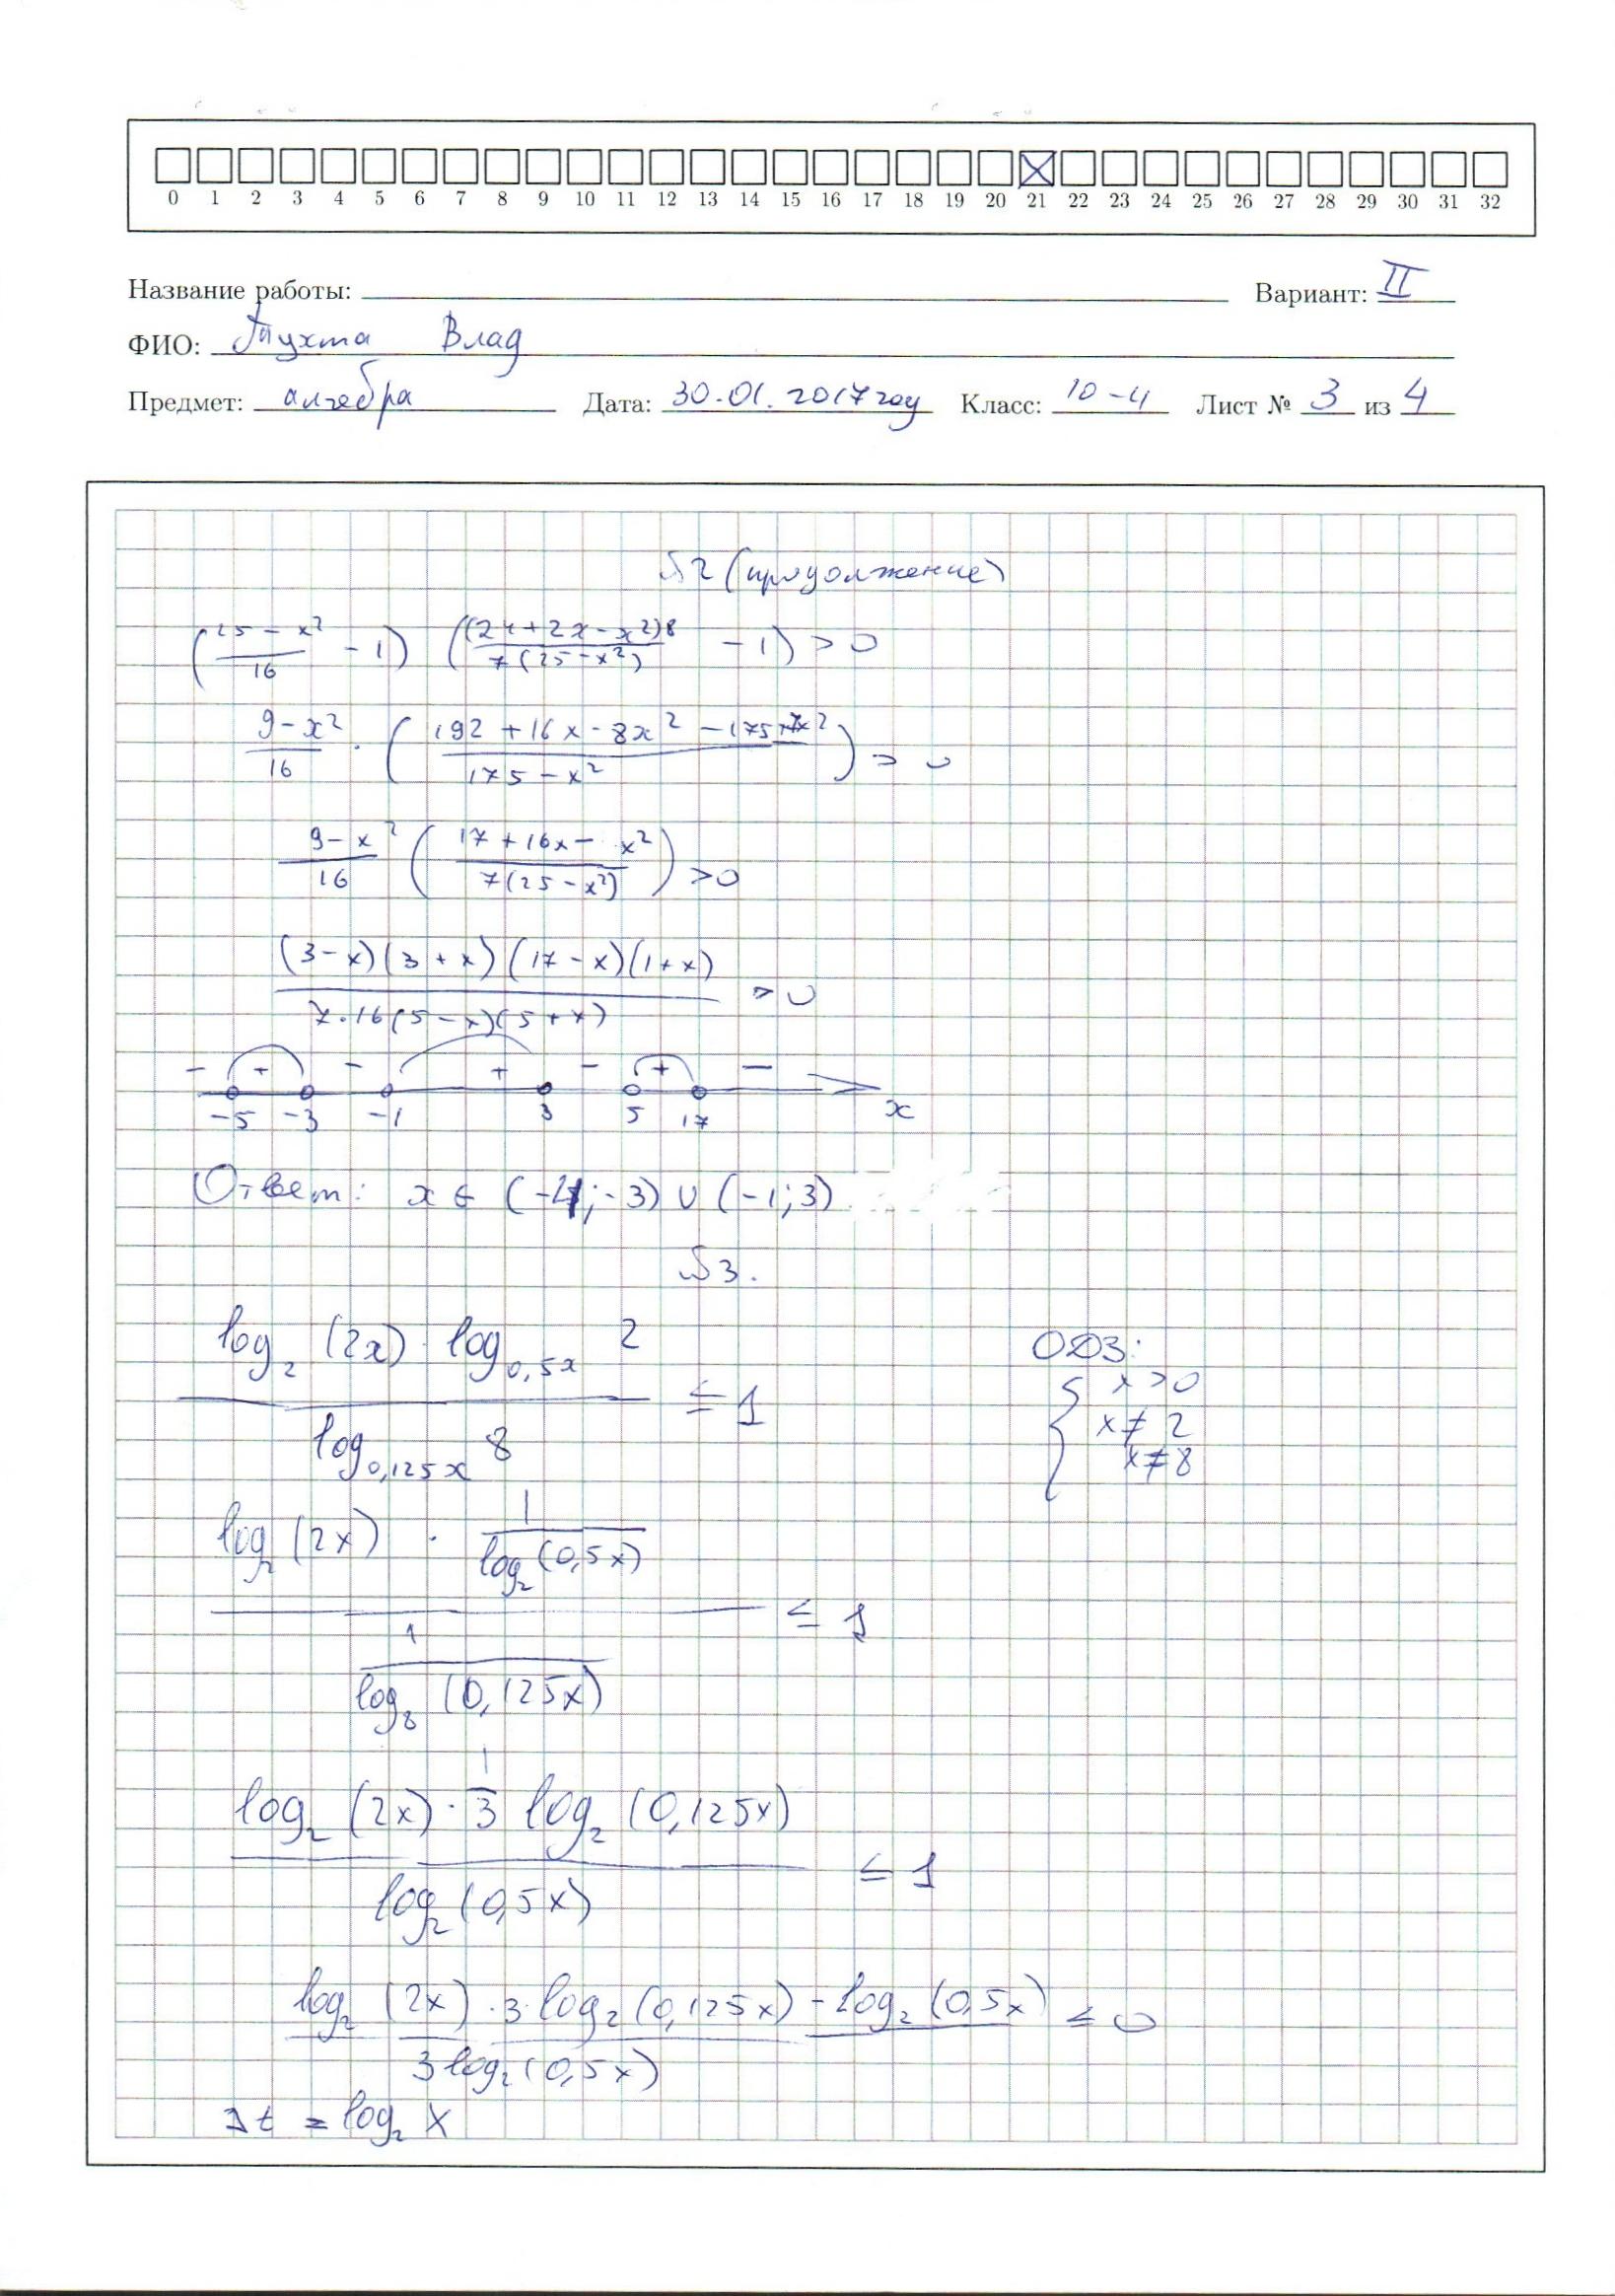 0 1 2 3 4 5 6 7 8 9 10 11 12 13 14 15 16 17 18 19 20 21 22 23 24 25 26 27 28 29 30 31 32
Название работы: Вариант: II
ФИО: Тухта Влад
Предмет: алгебра Дата: 30.01.2017 год Класс: 10-4 Лист № 3 из 4
№2 (продолжение)
((25 - x²)/16 - 1) (((24+2x-x²)8)/(7(25-x²)) - 1) > 0
(9-x²)/16 · ((192+16x-8x²-175+7x²)/(175-x²)) > 0
(9-x²)/16 ((17+16x-x²)/(7(25-x²))) > 0
((3-x)(3+x)(17-x)(1+x))/(7·16(5-x)(5+x)) > 0
- + - + - + -
-5 -3 -1 3 5 17 x
Ответ: x ∈ (-4;-3) ∪ (-1;3)
№3.
(log₂(2x) · log₀,₅ₓ 2)/(log₀,₁₂₅ₓ 8) ≤ 1
ОДЗ:
{ x > 0
x ≠ 2
x ≠ 8
(log₂(2x) · 1/(log₂(0,5x)))/(1/(log₈(0,125x))) ≤ 1
(log₂(2x) · 1/3 log₂(0,125x))/(log₂(0,5x)) ≤ 1
(log₂(2x) · 3 · log₂(0,125x) - log₂(0,5x))/(3log₂(0,5x)) ≤ 0
t = log₂ x